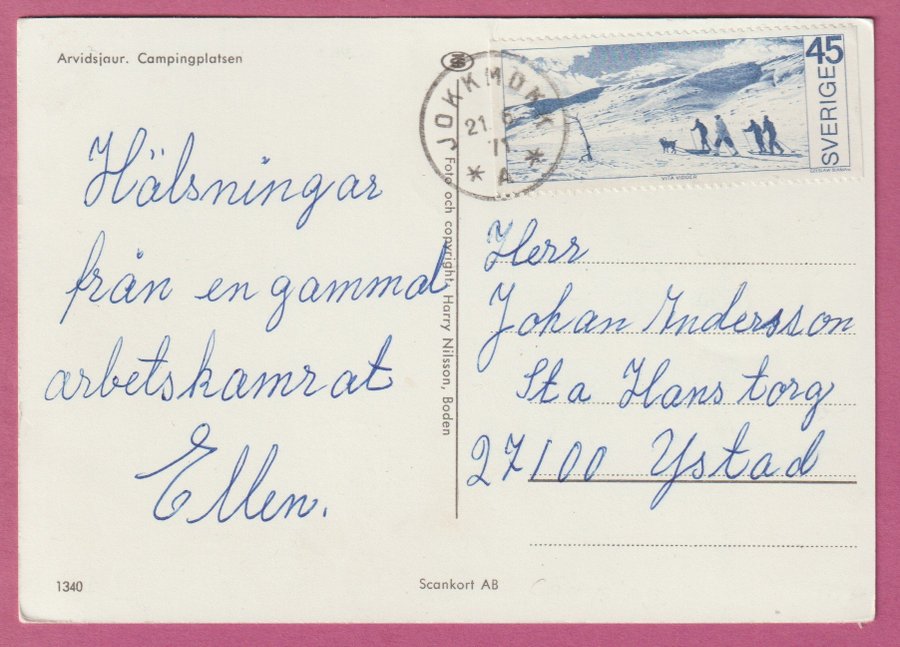 Arvidsjaur. Campingplatsen
Hälsningar
från en gammal
arbetskamrat
Ellen.
1340
Scankort AB
Foto och copyright: Harry Nilsson, Boden
JOKKMOKK
21. 6
71
* A *
45
SVERIGE
Herr
Johan Andersson
Sta Hans torg
27100 Ystad